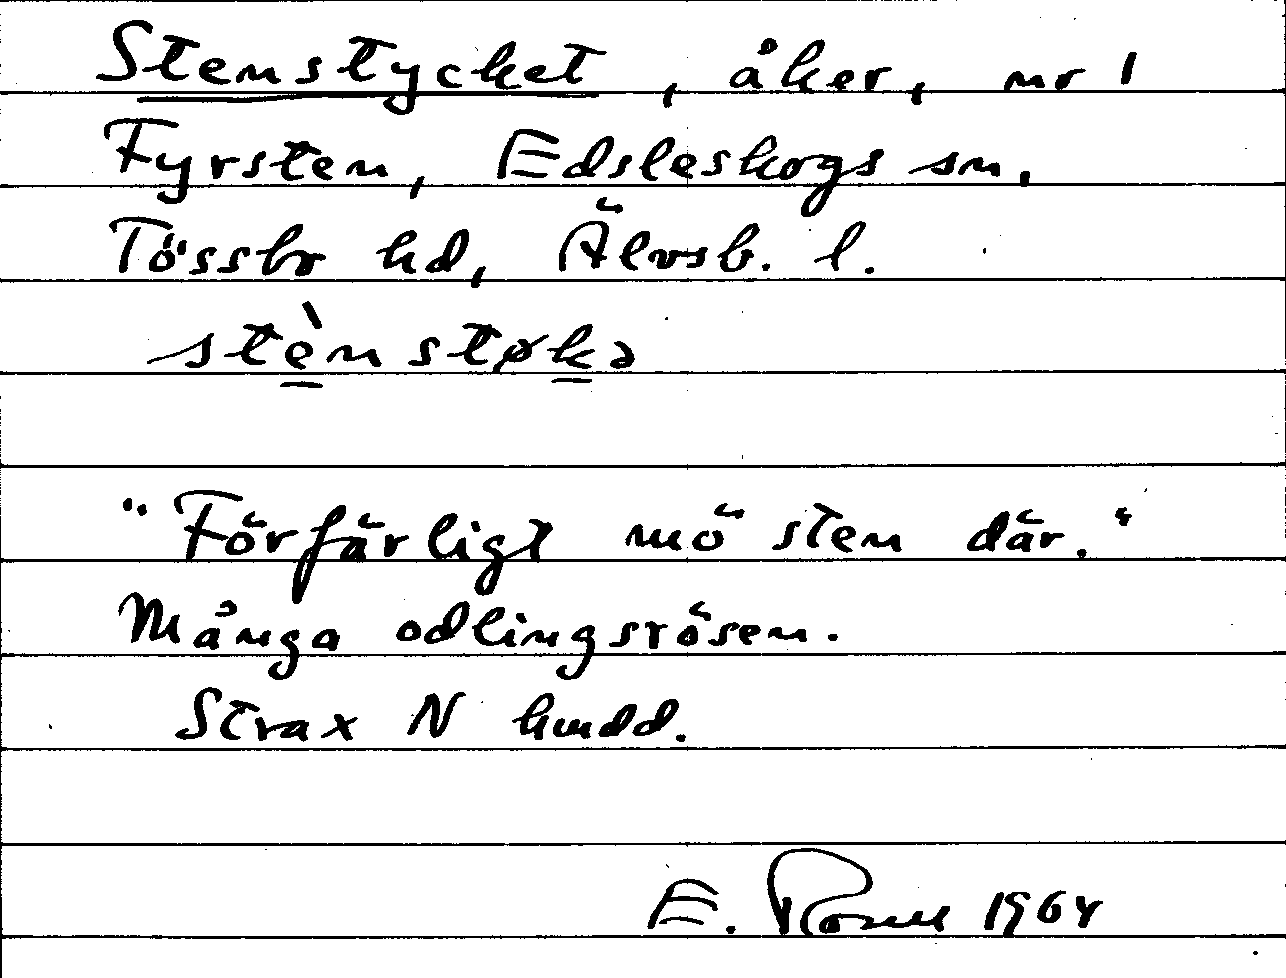 Stenstycket, åker, nr 1
Fyrsten, Edsleskogs sn,
Tössbo hd, Älvsb. l.
stèn støkə
"Förfärligt mö sten där."
Många odlingsrösen.
Strax N
E. 1964